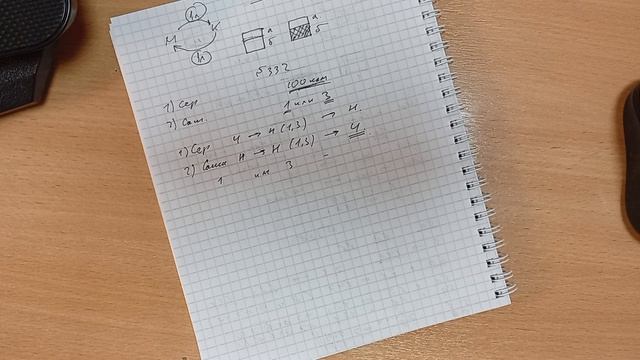 1л
М К
1л
а
б
а
б
№332
100 ком
1) Сер
1 или 3
2) Саш.
1) Сер Ч → Н (1,3) → Н.
2) Саша Н → Н (1,3) → Ч
1 или 3 –